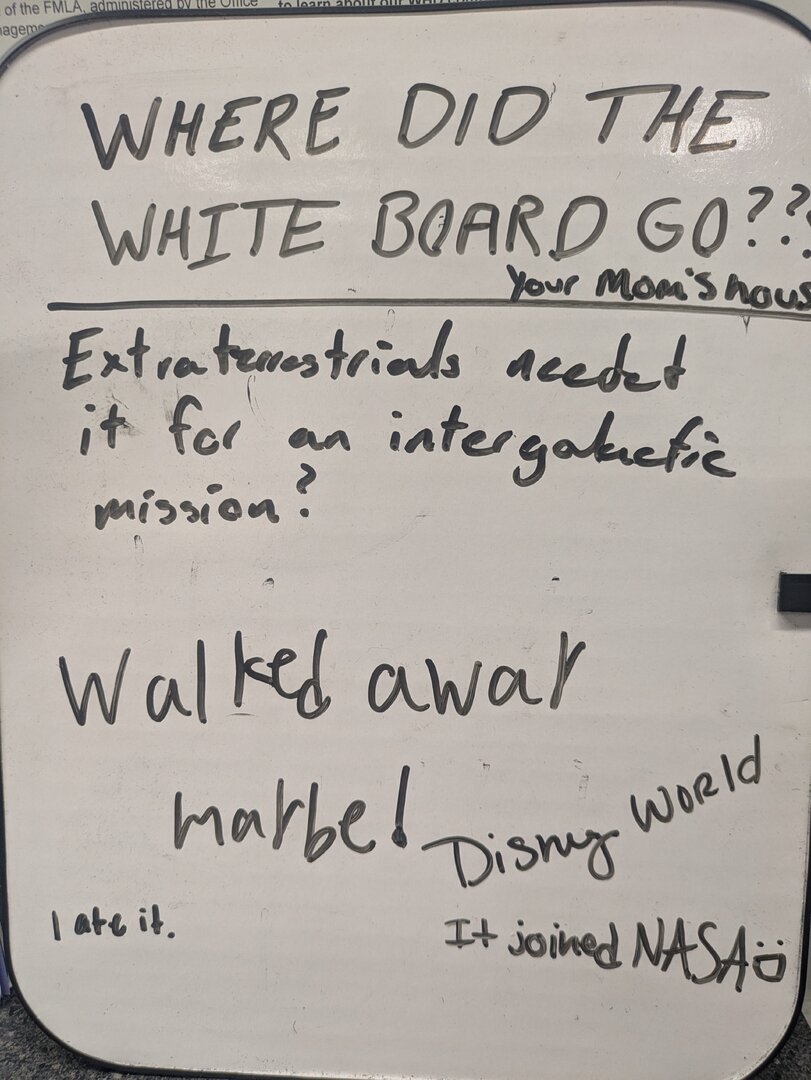 of the FMLA, administered by the Office
WHERE DID THE
WHITE BOARD GO???
Your Mom's hous
Extraterrestrials needed
it for an intergalactic
mission?
Walked away
maybe!
Disney WORLD
I ate it.
It joined NASA